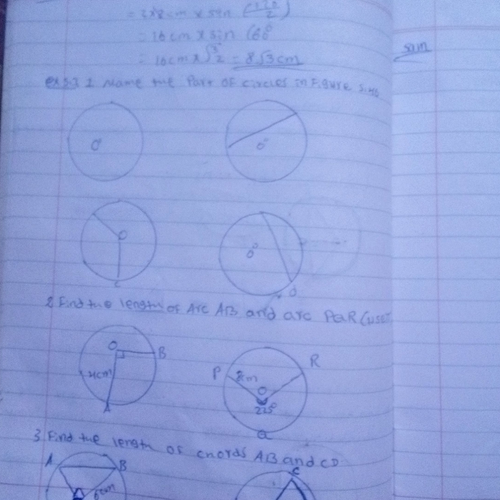 = 2x8cm x sin (120/2)
= 16cm x sin 60°
= 16cm x √3/2 = 8√3cm
sain
1 Name the Part of circles in Figure
O
O
O
O
2. Find the length of Arc AB and arc PQR (use
O B
4cm
A
P R
8cm
O
225°
Q
3. Find the length of chords AB and CD
A B
6cm
C